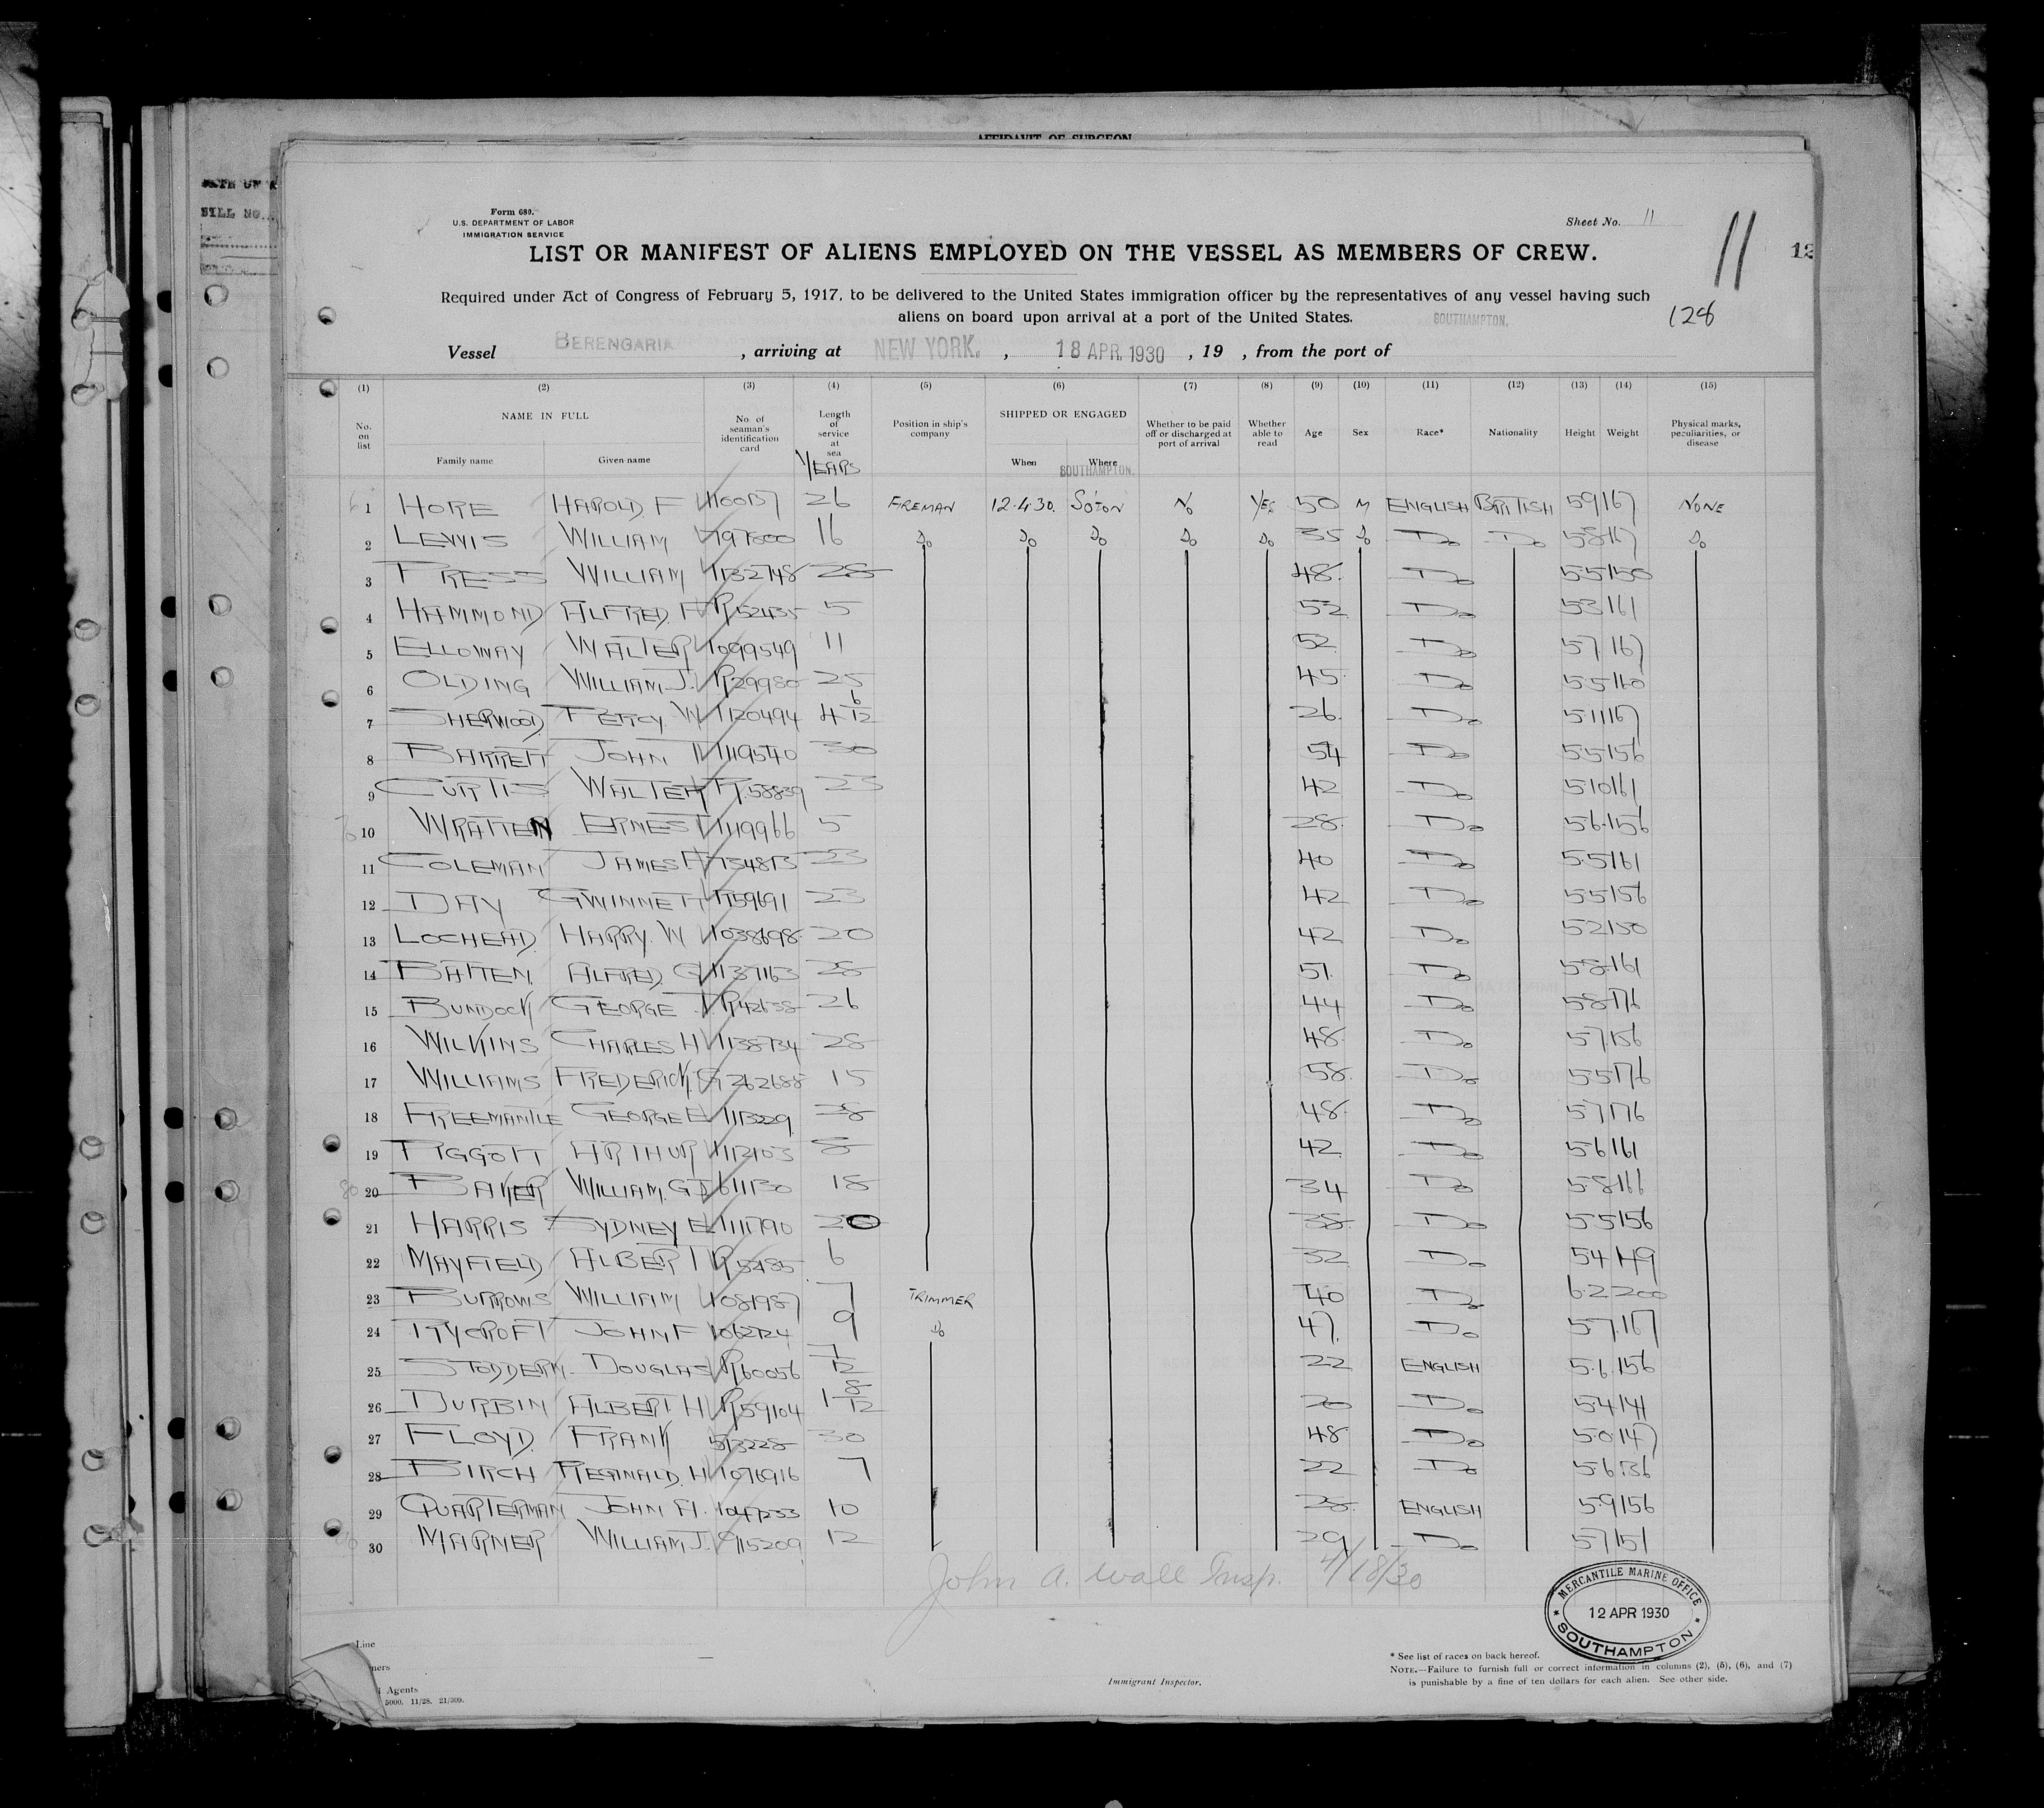 AFFIDAVIT OF SURGEON
BILL NO.
Form 680.
U.S. DEPARTMENT OF LABOR
IMMIGRATION SERVICE
Sheet No. 11
11
LIST OR MANIFEST OF ALIENS EMPLOYED ON THE VESSEL AS MEMBERS OF CREW.
Required under Act of Congress of February 5, 1917, to be delivered to the United States immigration officer by the representatives of any vessel having such
aliens on board upon arrival at a port of the United States.
128
Vessel BERENGARIA, arriving at NEW YORK, 18 APR. 1930, 19 , from the port of SOUTHAMPTON.
(1) (2) (3) (4) (5) (6) (7) (8) (9) (10) (11) (12) (13) (14) (15)
No. on list NAME IN FULL Family name Given name No. of seaman's identification card Length of service at sea YEARS Position in ship's company SHIPPED OR ENGAGED When Where SOUTHAMPTON. Whether to be paid off or discharged at port of arrival Whether able to read Age Sex Race* Nationality Height Weight Physical marks, peculiarities, or disease
1 HORE HAROLD F 26 FIREMAN 12.4.30. So'TON No YES 50 M ENGLISH BRITISH 59 167 NONE
2 LEWIS WILLIAM 797800 16 Do Do Do Do Do 35 Do Do Do 58 167 Do
3 PRESS WILLIAM 1132748 28 48 Do 55 150
4 HAMMOND ALFRED 5 52 Do 53 161
5 ELLOWAY WALTER 1099549 11 52 Do 57 167
6 OLDING WILLIAM J. R29980 25 45 Do 55 140
7 SHERWOOD PERCY W 1120494 4 6/12 26 Do 511 167
8 BARRETT JOHN 1119540 30 54 Do 55 156
9 CURTIS WALTER 58839 23 42 Do 510 161
10 WRATTEN ERNEST 1119966 5 28 Do 56 156
11 COLEMAN JAMES 23 40 Do 55 161
12 DAY GWINNETT 23 42 Do 55 156
13 LOCHEAD HARRY W 1038698 20 42 Do 52 150
14 BATTEN ALFRED G 1137163 28 51 Do 58 161
15 BUNDOCK GEORGE R42638 26 44 Do 58 176
16 WILKINS CHARLES H 1138734 28 48 Do 57 156
17 WILLIAMS FREDERICK 262688 15 58 Do 55 176
18 FREEMANTLE GEORGE E 1113229 28 48 Do 57 176
19 PIGGOTT ARTHUR 1112103 8 42 Do 56 161
20 BAKER WILLIAM G 611130 18 34 Do 58 166
21 HARRIS SYDNEY E 1111790 20 38 Do 55 156
22 MAYFIELD ALBERT 6 32 Do 54 149
23 BURROWS WILLIAM 1081987 7 TRIMMER 40 Do 6.2 200
24 JOHN F 1062724 9 Do 47 Do 57 167
25 DOUGLAS R60056 7/12 22 ENGLISH 5.6 156
26 DURBIN ALBERT H R59104 1 8/12 20 Do 54 141
27 FLOYD FRANK 513228 30 48 Do 50 147
28 BIRCH REGINALD H 1076916 7 22 Do 56 136
29 QUARTERMAN JOHN H. 10 28 ENGLISH 59 156
30 MARNER WILLIAM J. 915209 12 29 Do 57 151
John A. Wall Insp. 4/18/30
MERCANTILE MARINE OFFICE
12 APR 1930
SOUTHAMPTON
Line
Agents
5000. 11/28. 21/309.
Immigrant Inspector.
* See list of races on back hereof.
NOTE.—Failure to furnish full or correct information in columns (2), (5), (6), and (7)
is punishable by a fine of ten dollars for each alien. See other side.